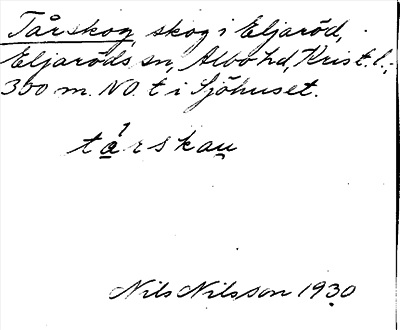 Tårskog, skog i Eljaröd,
Eljaröds sn, Albo hd, Krist. l.;
300 m. NO. t i Sjöhuset.
tårskau
Nils Nilsson 1930